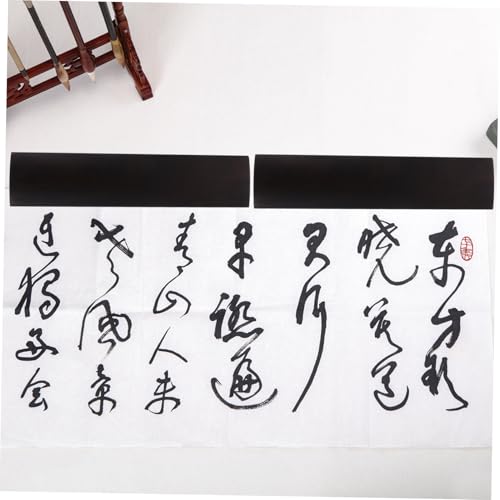 东方欲
晓莫道
君行
早踏遍
青山人未
老風景
边独好会